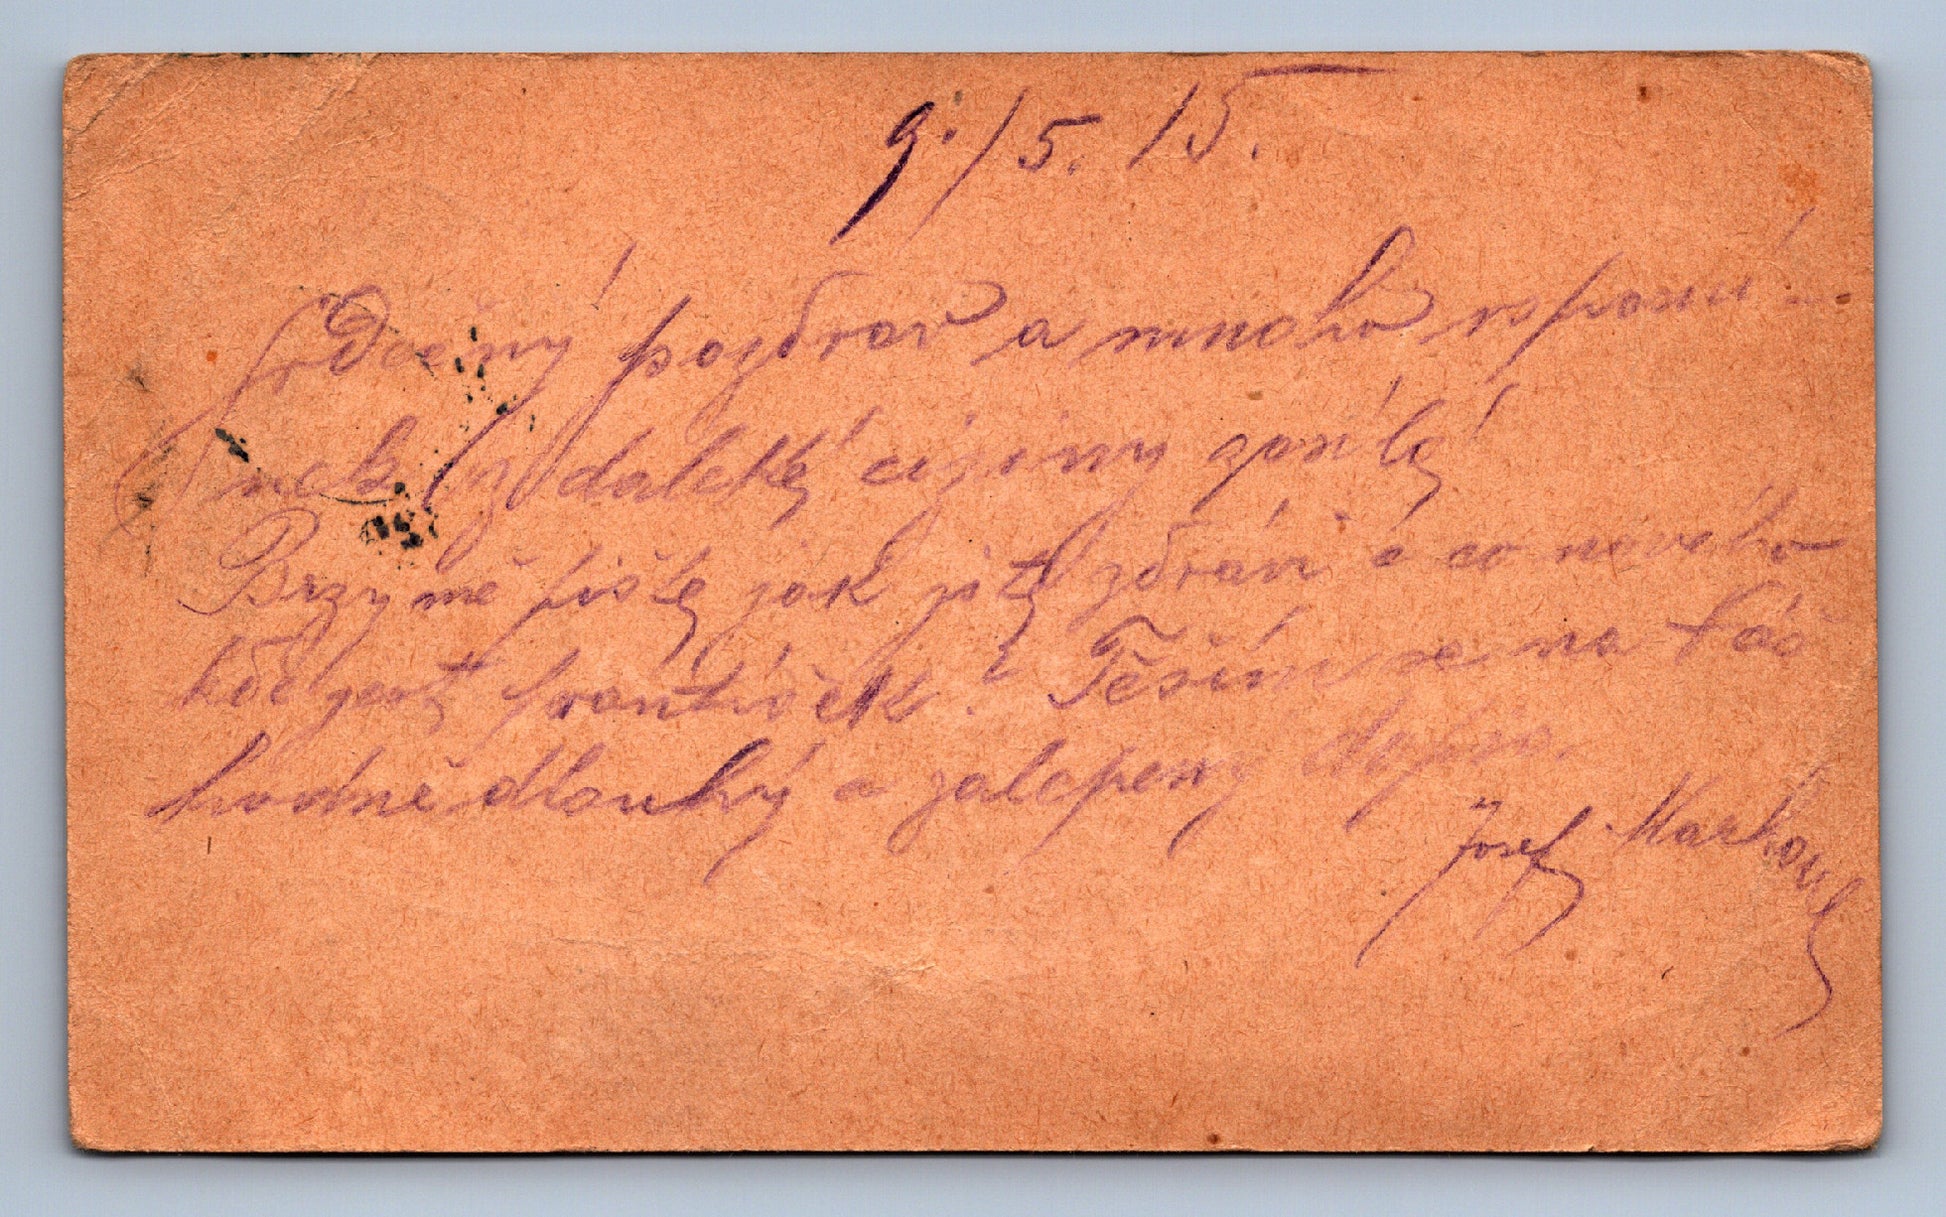 9./5. 15.
Srdečný pozdrav a mnoho vspomí-
nek z daleké ciziny zasílá
Brzy mě pište jak jste zdrávi a co nového
kde jest František. Těším se na Váš
hodně dlouhý a zalepený dopis.
Josef